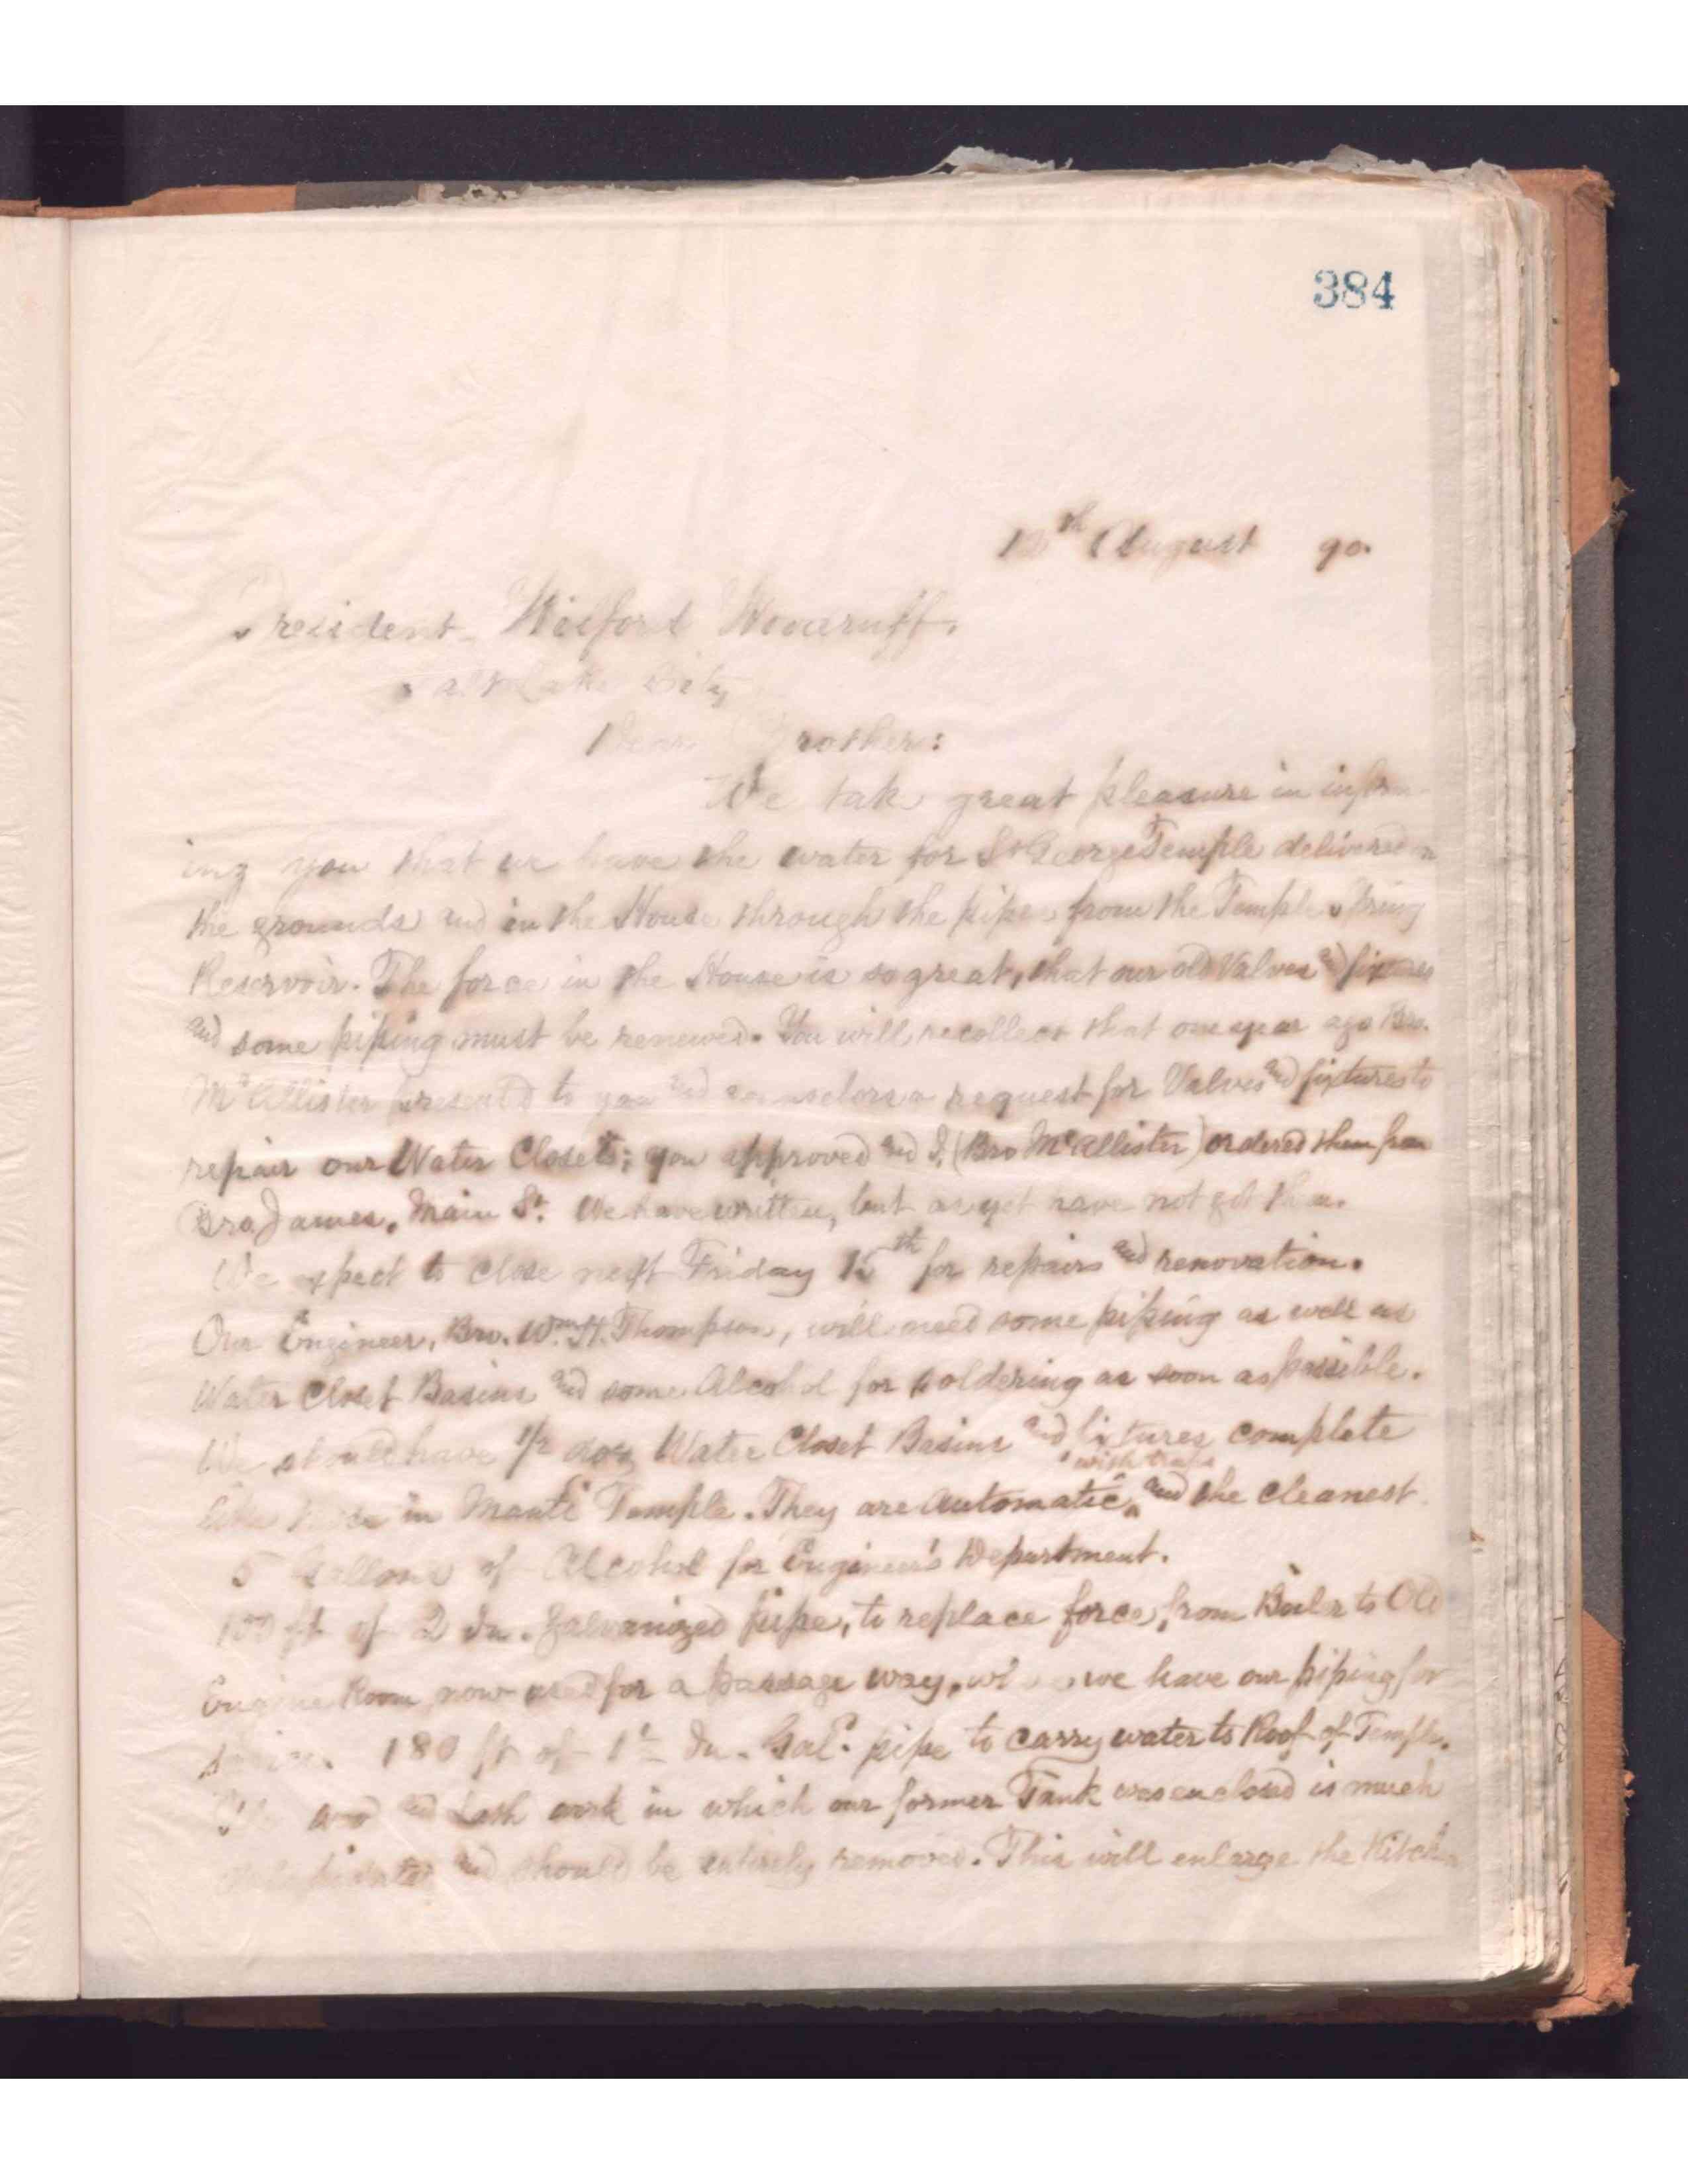 384
12th August 90.
President Wilford Woodruff,
Salt Lake City
Dear Brother:
We take great pleasure in inform-
ing you that we have the water for St George Temple delivered on
the grounds and in the House through the pipes from the Temple Spring
Reservoir. The force in the House is so great, that our old Valves and fixtures
and some piping must be renewed. You will recollect that one year ago Bro.
McAllister presented to you and counselors a request for Valves and fixtures to
repair our Water Closets; you approved and I, (Bro McAllister) ordered them from
Bro James, Main St. We have written, but as yet have not got them.
We expect to close next Friday 15th for repairs and renovation.
Our Engineer, Bro. Wm H. Thompson, will need some piping as well as
Water Closet Basins and some Alcohol for soldering as soon as possible.
We should have 1/2 doz Water Closet Basins and fixtures complete
with traps
like those in Manti Temple. They are automatic, and the cleanest
5 Gallons of Alcohol for Engineer's Department.
100 ft of 2 In. Galvanized pipe, to replace force, from Boiler to Old
Engine Room now used for a passage way, we have our piping for
service. 180 ft of In. Gal. pipe to carry water to Roof of Temple.
The wood and Lath work in which our former Tank was enclosed is much
dilapidated and should be entirely removed. This will enlarge the Kitchen